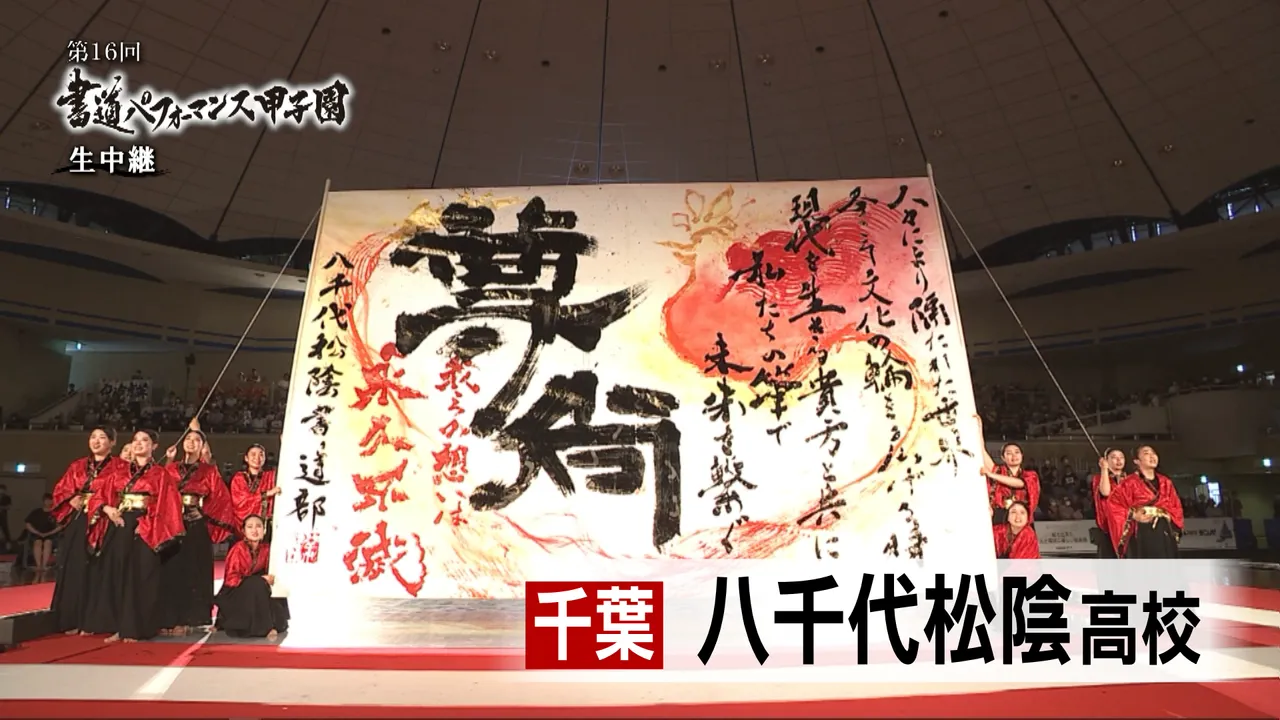 第16回
書道パフォーマンス甲子園
生中継
人々により隔たれた世界
今こそ文化の輪を
現代を生きる貴方と共に
私たちの筆で
未来を繋ぐ
我らの想いは
永久不滅
八千代松陰書道部
千葉 八千代松陰高校